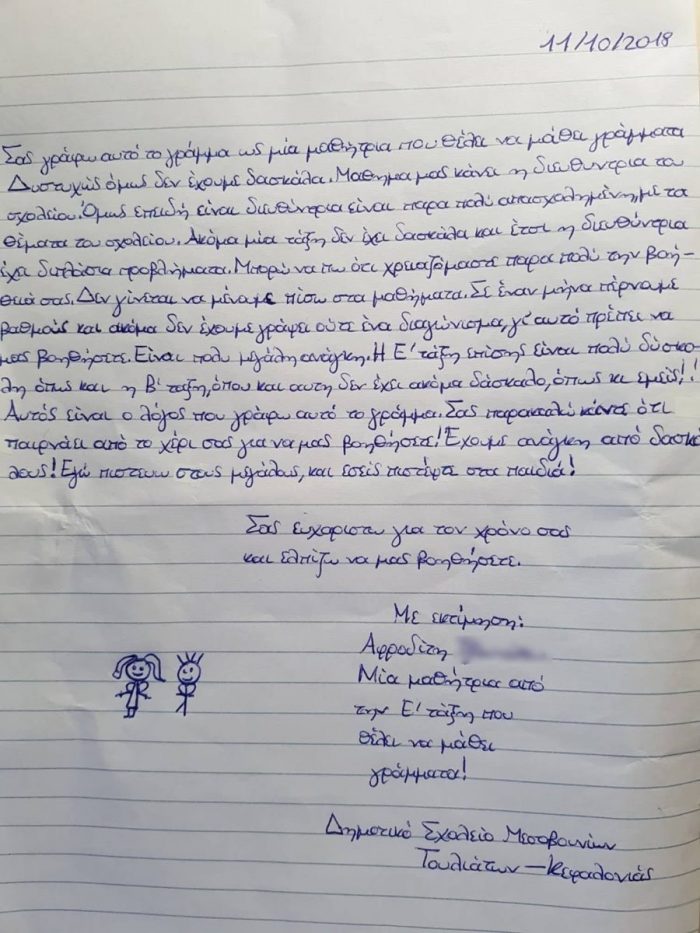 11/10/2018
Σας γράφω αυτό το γράμμα ως μία μαθήτρια που θέλει να μάθει γράμματα
Δυστυχώς όμως δεν έχουμε δασκάλα. Μάθημα μας κάνει η διευθύντρια του
σχολείου. Όμως επειδή είναι διευθύντρια είναι παρα πολύ απασχολημένη με τα
θέματα του σχολείου. Ακόμα μία τάξη δεν έχει δασκάλα και έτσι η διευθύντρια
έχει διπλάσια προβλήματα. Μπορώ να πω ότι χρειαζόμαστε παρα πολύ την βοή-
θειά σας. Δεν γίνεται να μένουμε πίσω στα μαθήματα. Σε έναν μήνα πέρνουμε
βαθμούς και ακόμα δεν έχουμε γράψει ούτε ένα διαγώνισμα, γι' αυτό πρέπει να
μας βοηθήσετε. Είναι πολυ μεγάλη ανάγκη. Η Ε' τάξη επίσης είναι πολύ δύσκο-
λη όπως και η Β' τάξη, όπου και αυτη δεν έχει ακόμα δάσκαλο, όπως κι εμείς!!
Αυτός είναι ο λόγος που γράφω αυτό το γράμμα. Σας παρακαλώ κάντε ότι
παιρνάει από το χέρι σας για να μας βοηθήσετε! Έχουμε ανάγκη από δασκά
λους! Εγώ πιστευω στους μεγάλους, και εσείς πιστέψτε στα παιδιά!
Σας ευχαριστω για τον χρόνο σας
και ελπίζω να μας βοηθήσετε.
Με εκτίμηση:
Αφροδίτη
Μία μαθήτρια από
την Ε' τάξη που
θέλει να μάθει
γράμματα!
Δημοτικό Σχολείο Μεσοβουνίων
Τουλιάτων – Κεφαλονιάς